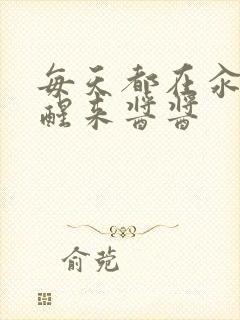 每天都在汆
醒来酱酱
俞菀